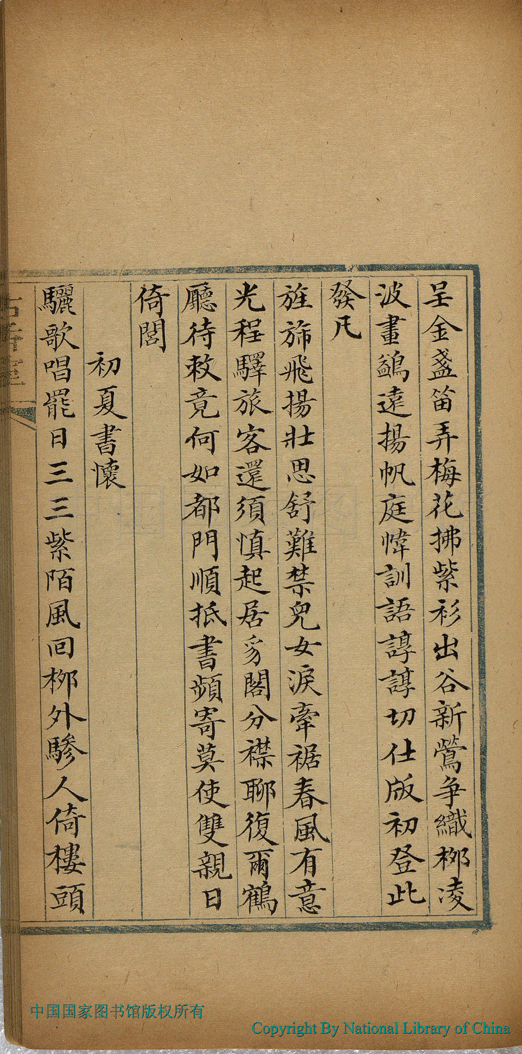 呈金盞笛弄梅花拂紫衫出谷新鶯争織栁凌
波畫鷁遠揚帆庭幃訓語諄諄切仕版初登此
發凡
旌斾飛揚壯思舒難禁兒女淚牽裾春風有意
光程驛旅客還須慎起居豸閣分襟聊復爾鶴
廳待敕竟何如都門順抵書頻寄莫使雙親日
倚閭
初夏書懷
驪歌唱罷日三三紫陌風回栁外驂人倚樓頭
中国国家图书馆版权所有
Copyright By National Library of China